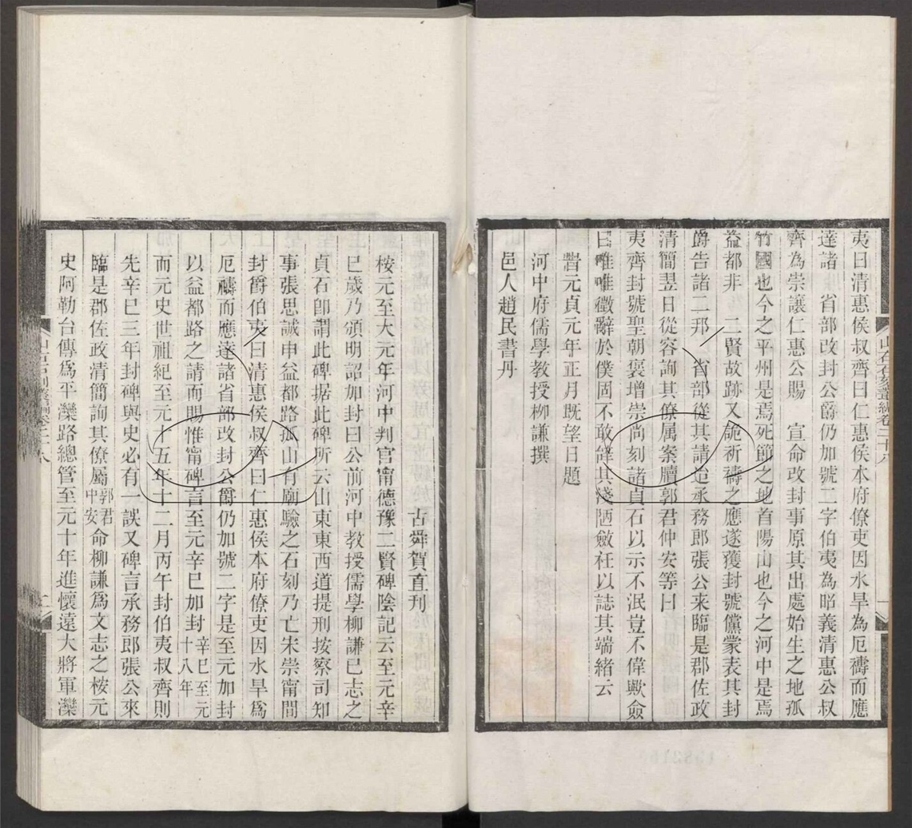 夷曰清惠侯叔齊曰仁惠侯本府僚吏因水旱為厄禱而應
達諸　省部改封公爵仍加號二字伯夷為昭義清惠公叔
齊為崇讓仁惠公賜　宣命改封事原其出處始生之地孤
竹國也今之平州是焉死節之地首陽山也今之河中是焉
益都非　二賢故跡又能祈禱之應遂獲封號儻蒙表其封
爵告諸二邦　省部從其請迨承務郎張公来臨是郡佐政
清簡翌日從容詢其僚属案牘郭君仲安等曰
夷齊封號聖朝褒增崇尚刻諸貞石以示不泯豈不偉歟僉
曰唯唯徵辭於僕固不敢辭其淺陋斂衽以誌其端緒云
旹元貞元年正月既望日題
河中府儒學教授柳謙撰
邑人趙民書丹
古舜賀直刊
桉元至大元年河中判官甯德豫二賢碑陰記云至元辛
巳歲乃頒明詔加封曰公前河中教授儒學柳謙已志之
貞石卽謂此碑据此碑所云山東東西道提刑按察司知
事張思誠申益都路孤山有廟驗之石刻乃亡宋崇甯間
封爵伯夷曰清惠侯叔齊曰仁惠侯本府僚吏因水旱爲
厄禱而應達諸省部改封公爵仍加號二字是至元加封
以益都路之請而賜惟甯碑言至元辛巳加封辛巳至元十八年
而元史世祖紀至元十五年十二月丙午封伯夷叔齊則
先辛巳三年封碑與史必有一誤又碑言承務郎張公來
臨是郡佐政清簡詢其僚屬郭君中安命柳謙爲文志之桉元
史阿勒台傳爲平灤路總管至元十年進懷遠大將軍灤
山右石刻叢編卷二十八